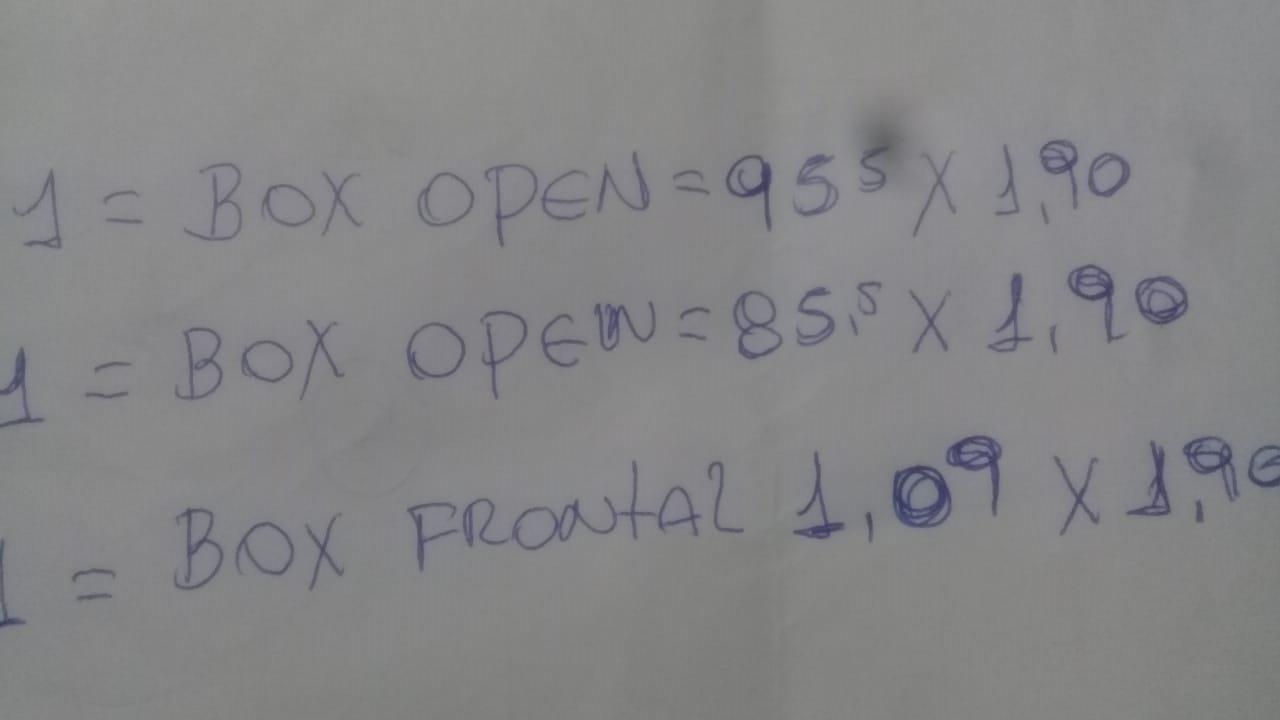 1 = BOX OPEN = 95 5 X 1,90
1 = BOX OPEN = 85,5 X 1,90
1 = BOX FRONTAL 1,09 X 1,90